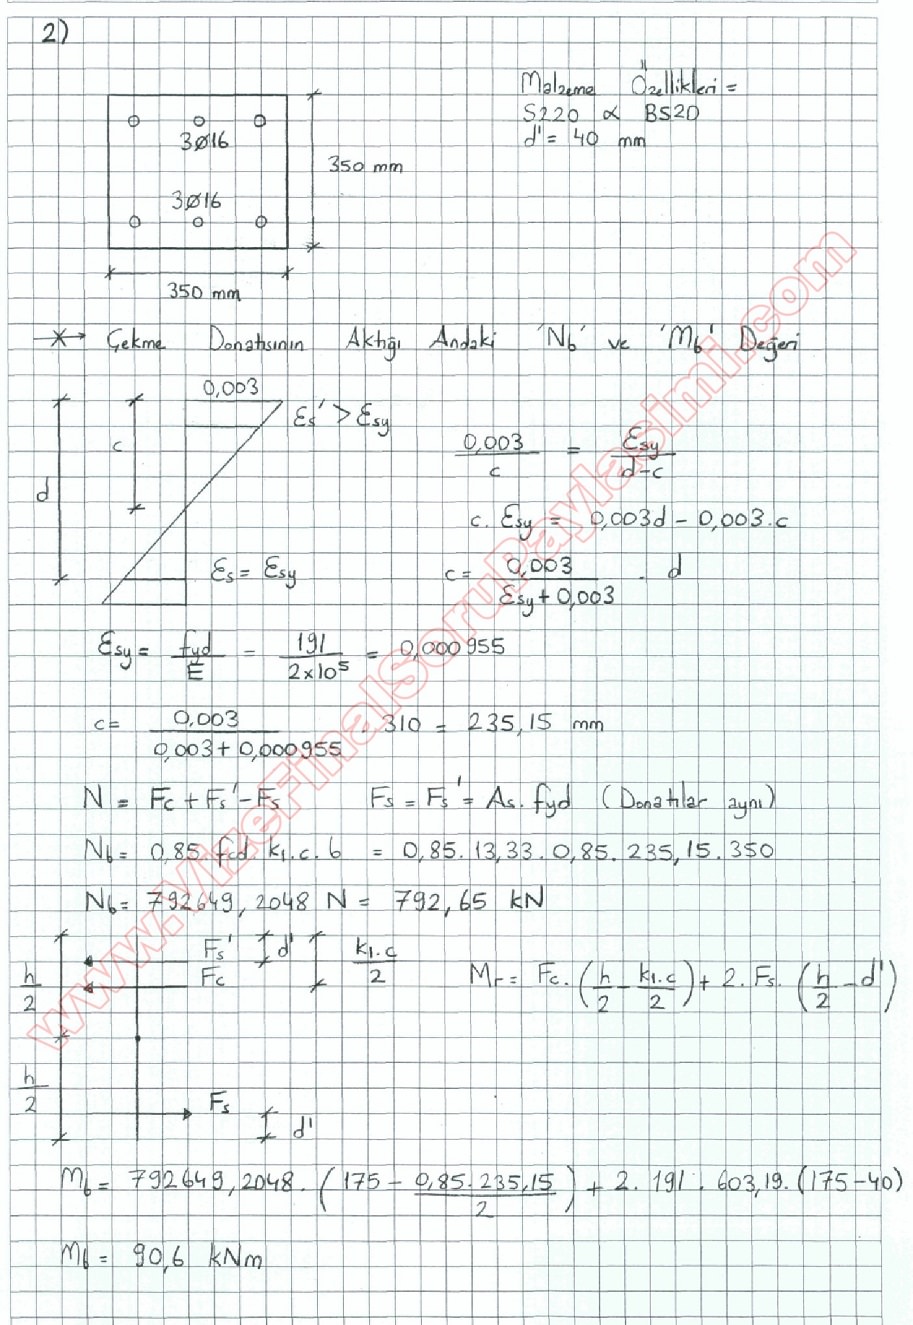 2)
Malzeme Özellikleri =
S220 α BS20
d' = 40 mm
3Ø16
350 mm
3Ø16
350 mm
Çekme Donatısının Aktığı Andaki 'Nb' ve 'Mb' Değeri
0,003
εs' > εsy
c
d
0,003 / c = εsy / d-c
c. εsy = 0,003d - 0,003.c
εs = εsy
c = 0,003 / εsy + 0,003 . d
εsy = fyd / E = 191 / 2x10⁵ = 0,000955
c = 0,003 / 0,003 + 0,000955 . 310 = 235,15 mm
N = Fc + Fs' - Fs Fs = Fs' = As. fyd (Donatılar aynı)
Nb = 0,85 fcd k1.c.b = 0,85. 13,33. 0,85. 235,15. 350
Nb = 792649,2048 N = 792,65 kN
Fs' d' k1.c / 2
Fc
h / 2
Mr = Fc. (h/2 - k1.c/2) + 2. Fs. (h/2 - d')
h / 2
Fs
d'
Mb = 792649,2048. (175 - 0,85. 235,15 / 2) + 2. 191. 603,19. (175-40)
Mb = 90,6 kNm
www.VizeFinalSoruPaylasimi.com